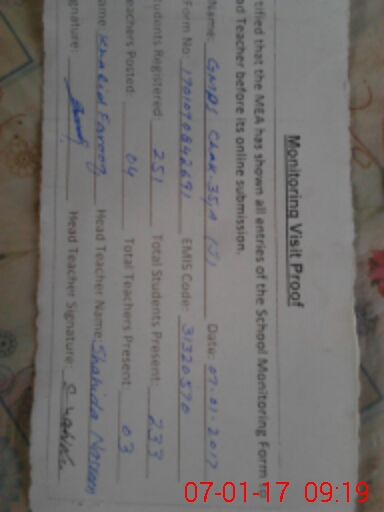 Monitoring Visit Proof
tified that the MEA has shown all entries of the School Monitoring Form to
ad Teacher before its online submission.
Name: GMPS Chak 35/A (J) Date: 07-01-2017
Form No: 1701070842691 EMIS Code: 31320570
tudents Registered: 251 Total Students Present: 233
eachers Posted: 04 Total Teachers Present: 03
ame: Khalid Farooq Head Teacher Name: Shahida Nasreen
gnature: Head Teacher Signature: Shahida
07-01-17 09:19